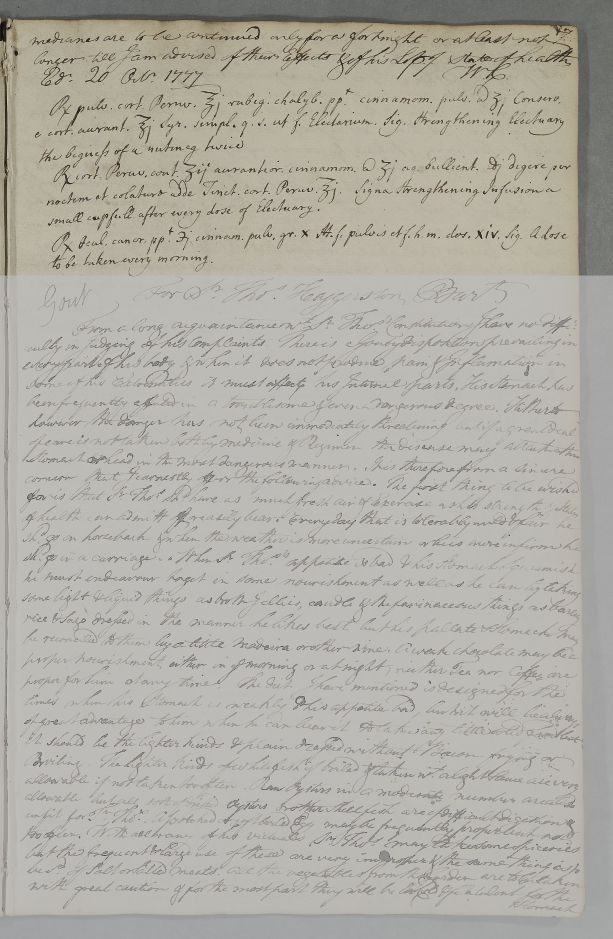 medicines are to be continued only for a fortnight or at least not
longer till I am advised of their Effects & of his Lops state of health
Edr. 20 Octr. 1777 W C
Rx pulv. cort. Peruv. ℥j rubig. chalyb. ppt cinnamom. pulv. a ʒj Conserv.
e cort. aurant. ℥j Syr. simpl. q. s. ut f. Electarium. Sig. Strengthening Electuary
the bigness of a nutmeg twice
Rx cort. Peruv. cont. ℥ij aurantior. cinnamom. a ʒj aq. bullient. digere per
noctem et colaturae adde Tinct. cort. Peruv. ℥j. Signa Strengthening Infusion a
small cupfull after every dose of Electuary.
Rx ocul. cancr. ppt ʒj cinnam. pulv. gr. x M. f. pulvis et f. h. m. dos. xiv. Sig. A dose
to be taken every morning.
Gout For Sr. Thos. Haggerston Bart.
From a long acquaintance wt. Sr. Thos.'s Constitution I have no diffi-
culty in judging of his Complaints. There is a Gouty disposition prevailing in
every part of his body & when it does not produce pain & Inflammation in
some of his Extremities it must affect his Internal parts. His Stomach has
been frequently affected in a troublesome & even a dangerous degree. Hitherto
however the danger has not been immediately threatening but if a great deal
of care is not taken both by medicine & Regimen the disease may attack
the Stomach or head in the most dangerous manner. It is therefore from a sincere
concern that I earnestly offer the following advice. The first thing to be wished
for is that Sr. Thos. shd. have as much fresh air & Exercise as his strength & State
of health can admit of or easily bear. Every day that is tolerably mild & fair he
shd. go on horseback & when the weather is more uncertain or he is more infirm he
shd. go in a carriage. When Sr. Thos.'s appetite is bad & his Stomach squeamish
he must endeavour to get in some nourishment as well as he can by taking
some light & liquid things as broth Jellies, caudle & the farinaceous things as barley
rice & Sago dressed in the manner he likes best but his pallate & Stomach may
be reconciled to them by a little Madeira or other wine. A weak chocolate may be a
proper nourishment either in ye morning or at night; neither Tea nor Coffee are
proper for him at any time. The diet I have mentioned is designed for the
times when his Stomach is weakly & his appetite bad, but it will be
of great advantage to him when he can bear it to take
It should be the lighter kinds & plain dressed without Bacon, frying or
broiling. The lighter kinds of white fish if boiled & taken wt. a light sauce are very
allowable if not taken too often. Raw Oysters in a moderate number are also
allowable but all sorts of fried Oysters & other Shellfish are of difficult digestion &
unfit for Sr. Thos. may be frequently proper but not
too often. With all of his victuals Sr. Thos. may take some spiceries
but the frequent & large use of these are very improper & the same thing is to
be sd. of Salt or salted meats. All the vegetables from the garden are to be taken
with great caution & for the most part they will be the
Stomach